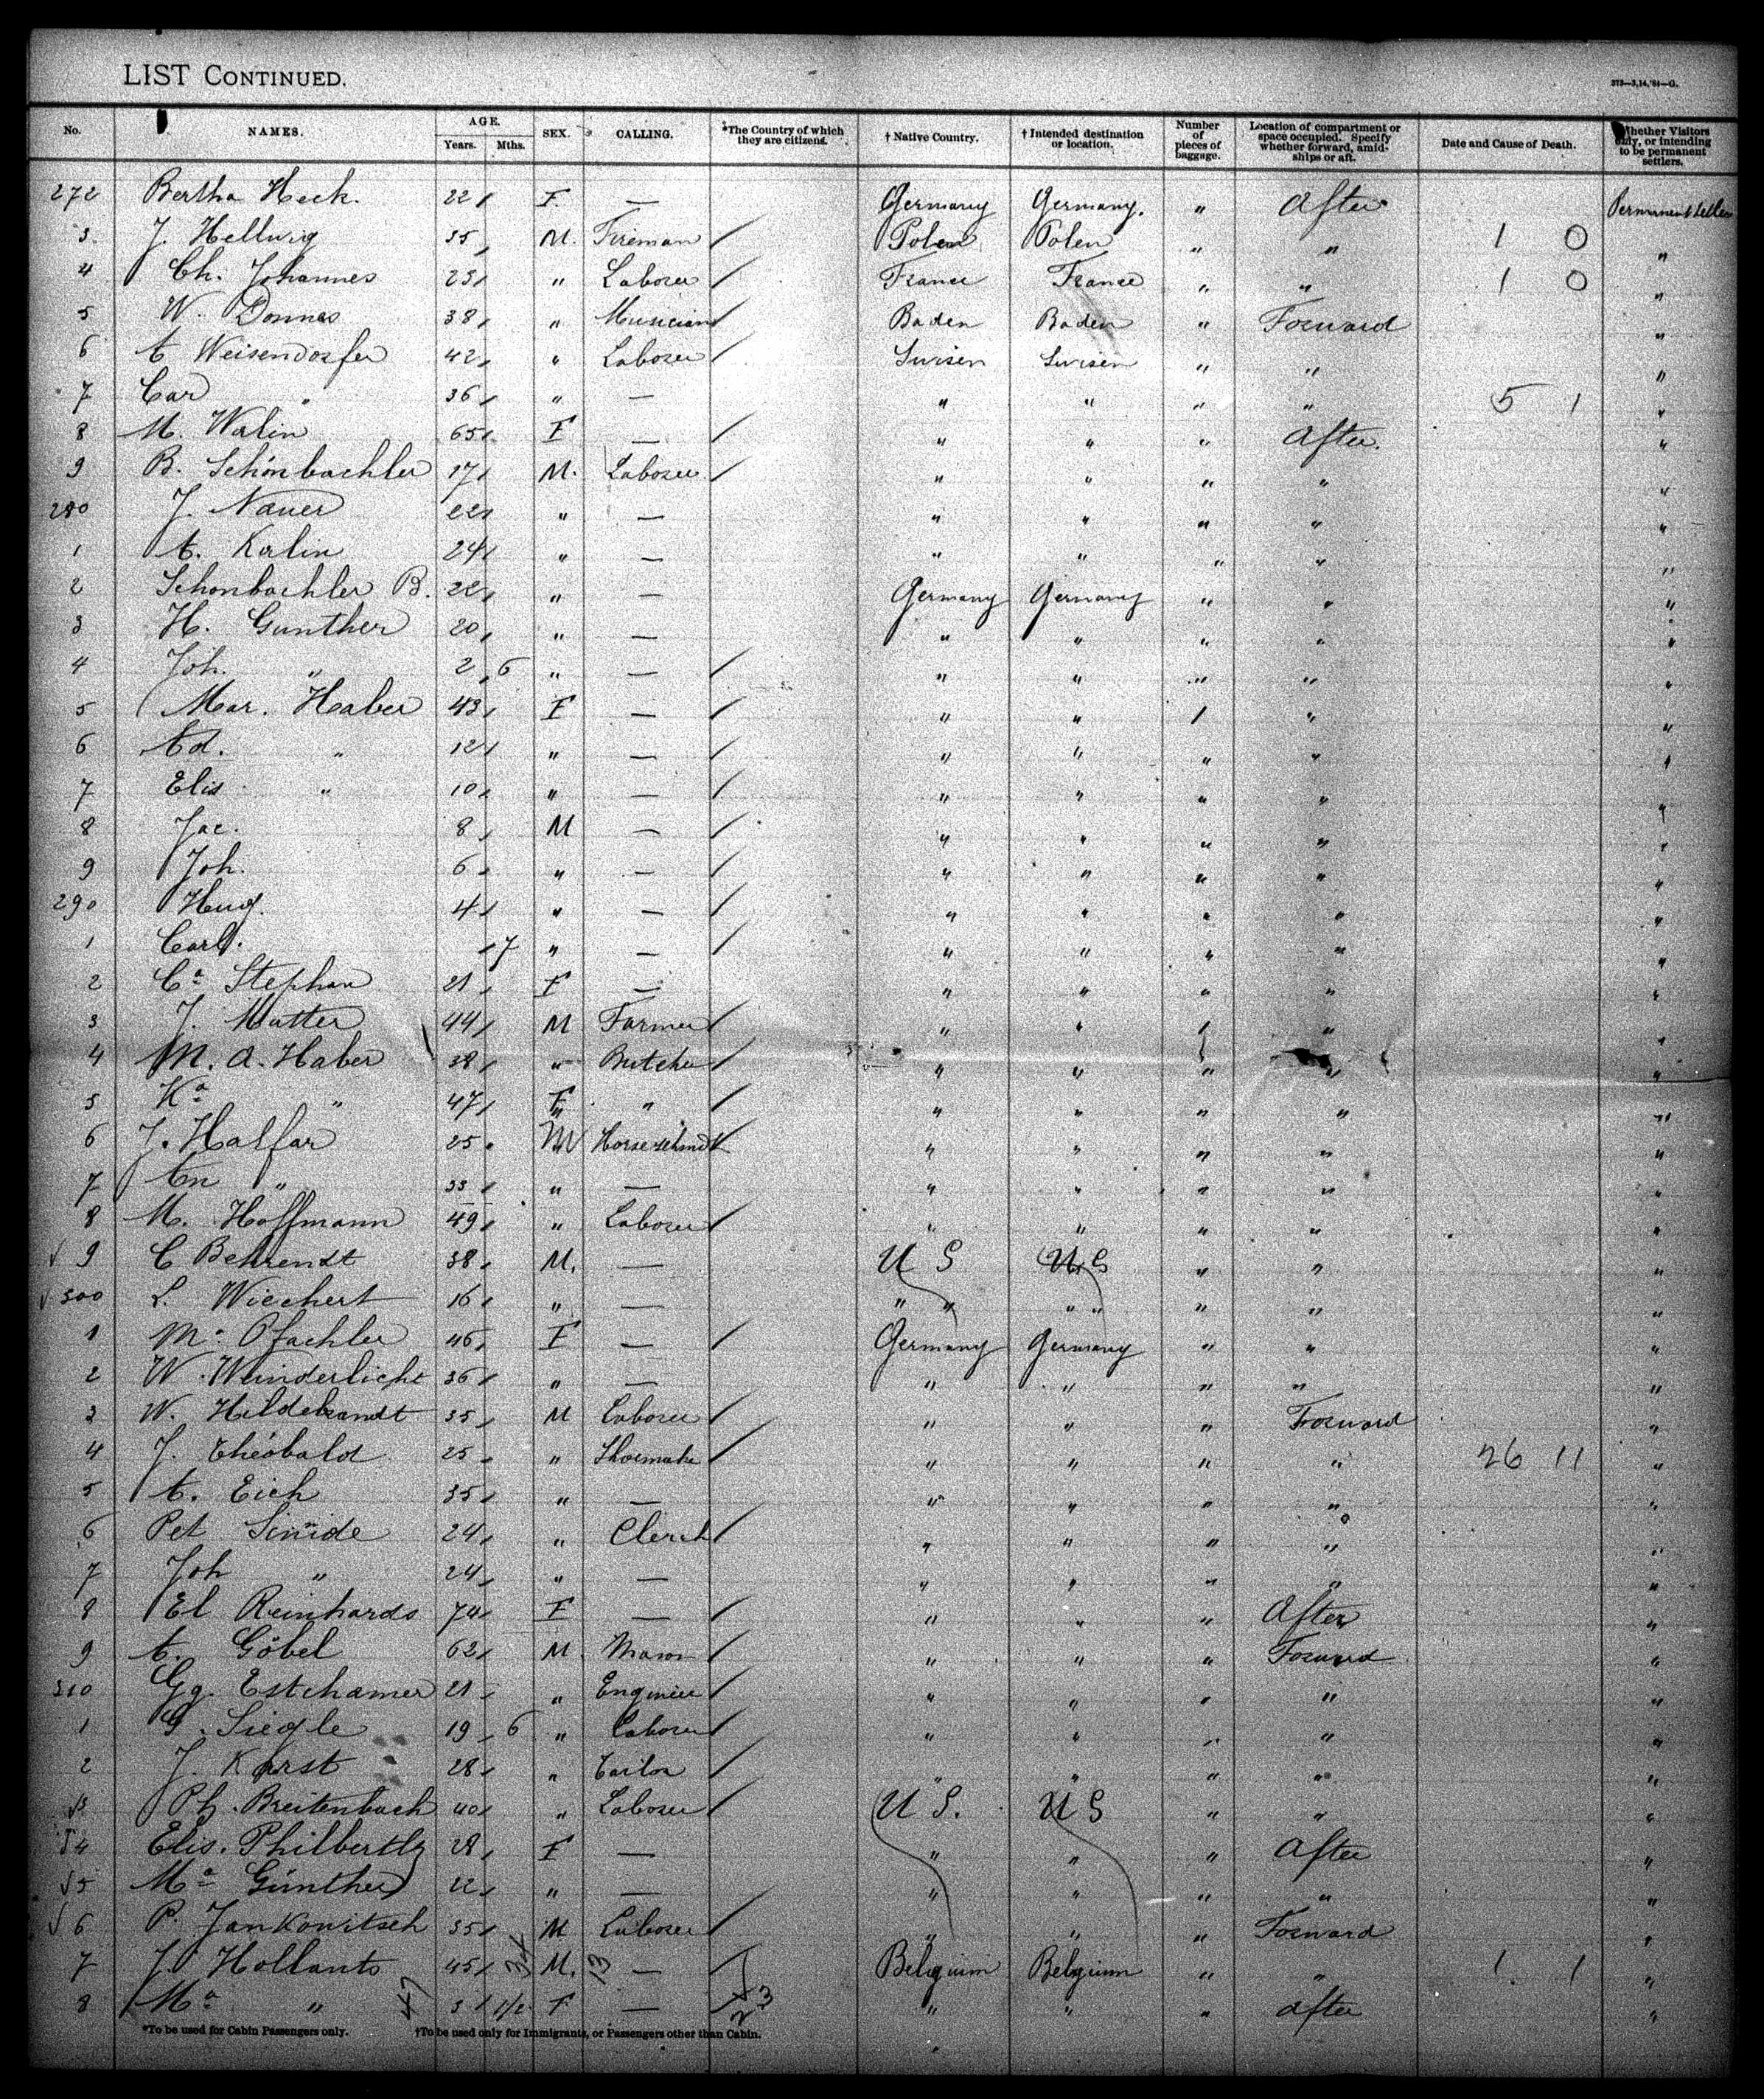 LIST CONTINUED.
373—3,14,'84—G.
No. NAMES. AGE. Years. Mths. SEX. CALLING. *The Country of which they are citizens. † Native Country. † Intended destination or location. Number of pieces of baggage. Location of compartment or space occupied. Specify whether forward, amidships or aft. Date and Cause of Death. Whether Visitors only, or intending to be permanent settlers.
272 Bertha Heck. 22 F. — Germany Germany. " After Permanent Settler
3 J. Hellwig 35 M. Fireman Polen Polen " " 1 0 "
4 Ch. Johannes 23 " Laborer France France " " 1 0 "
5 W. Donnes 38 " Musician Baden Baden " Forward "
6 A Weisendorfer 42 " Laborer Swisen Swisen " " "
7 Car " 36 " — " " " " 5 1 "
8 M. Walin 65 F — " " " After. "
9 B. Schönbachler 17 M. Laborer " " " " "
280 J. Nauer 22 " — " " " " "
1 A. Kalin 24 " — " " " " "
2 Schonbachler B. 22 " — Germany Germany " " "
3 H. Gunther 20 " — " " " " "
4 Joh. " 2 6 " — " " " " "
5 Mar. Haber 43 F — " " 1 " "
6 Ad. " 12 " — " " " " "
7 Elis " 10 " — " " " " "
8 Jac. 8 M — " " " " "
9 Joh. 6 " — " " " " "
290 Heug. 4 " — " " " " "
1 Carl. 7 " — " " " " "
2 Ca Stephan 21 F — " " " " "
3 J. Matter 44 M Farmer " " 1 " "
4 M. A. Haber 38 " Butcher " " " " "
5 Ka " 47 F " " " " " "
6 J. Halfar 25 M Horseschmidt " " " " "
7 An " 33 " — " " " " "
8 M. Hoffmann 49 " Laborer " " " " "
9 C Behrendt 38 M. — U S U S " " "
300 L. Wiechert 16 " — " " " " " " "
1 Ma Pfachler 46 F — Germany Germany " " "
2 W. Wunderlicht 36 " — " " " " "
3 W. Hildebrandt 35 M Laborer " " " Forward "
4 J. Théobald 25 " Shoemaker " " " " 26 11 "
5 A. Eich 35 " — " " " " "
6 Pet Sinide 24 " Clerck " " " " "
7 Joh " 24 " — " " " " "
8 El Reinhards 74 F — " " " After "
9 A. Göbel 62 M Mason " " " Forward "
310 Gg. Estchamer 21 " Engineer " " " " "
1 G. Siegle 19 6 " Laborer " " " " "
2 J. Karst 28 " Tailor " " " " "
3 Ph. Breitenbach 40 " Laborer U S. U S " " "
4 Elis. Philbertz 28 F — " " " After "
5 Ma Günther 22 " — " " " " "
6 P. Jankowitsch 35 M Laborer " " " Forward "
7 J. Hollants 45 M. 13 — Belgium Belgium " " 1 1 "
8 Ma " 3 1/2 F — 23 " " " After "
*To be used for Cabin Passengers only. †To be used only for Immigrants, or Passengers other than Cabin.